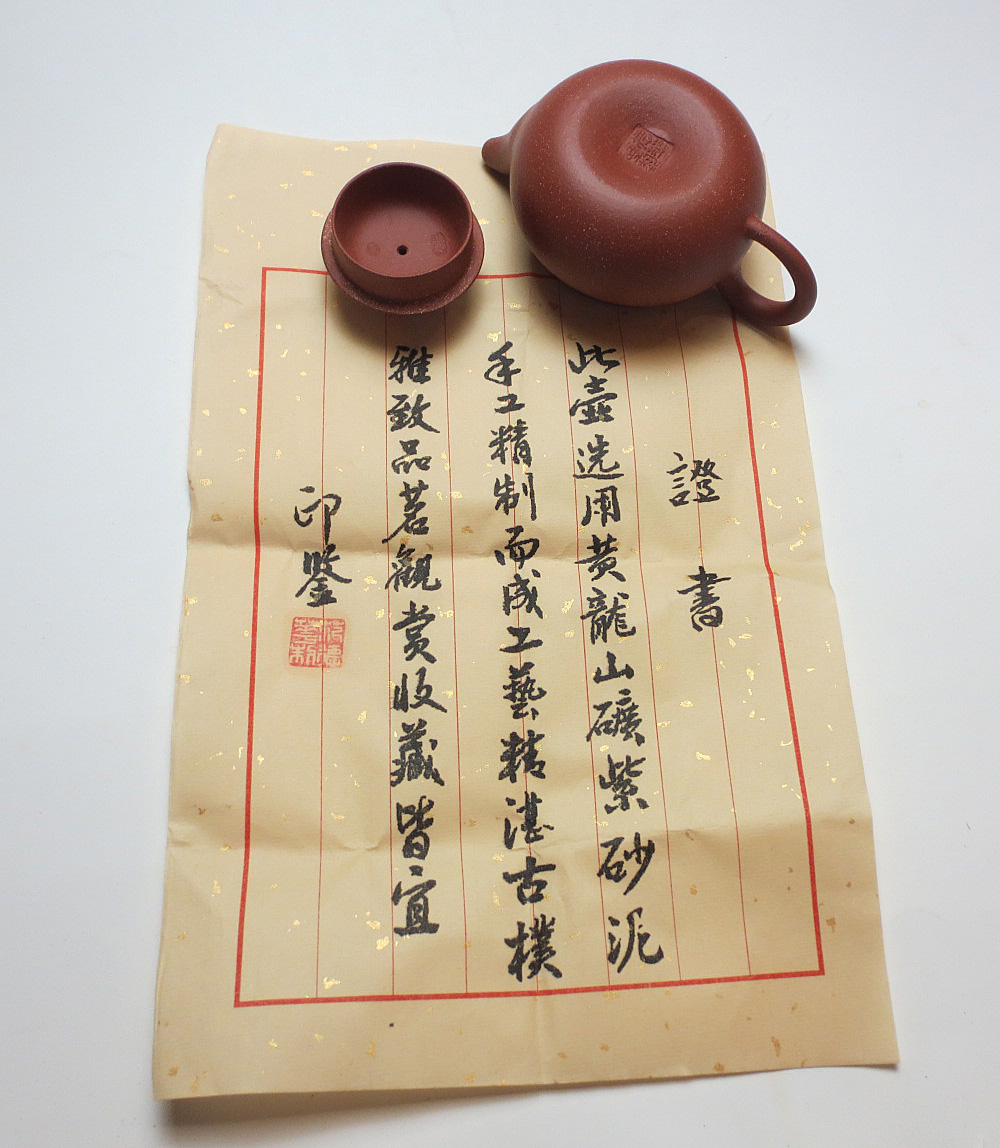 證書
此壺选用黄龍山礦紫砂泥
手工精制而成工藝精湛古樸
雅致品茗觀赏收藏皆宜
印鑒